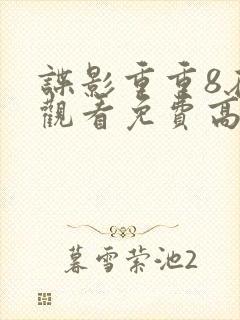 諜影重重8
觀看免費高
暮雪萦池2